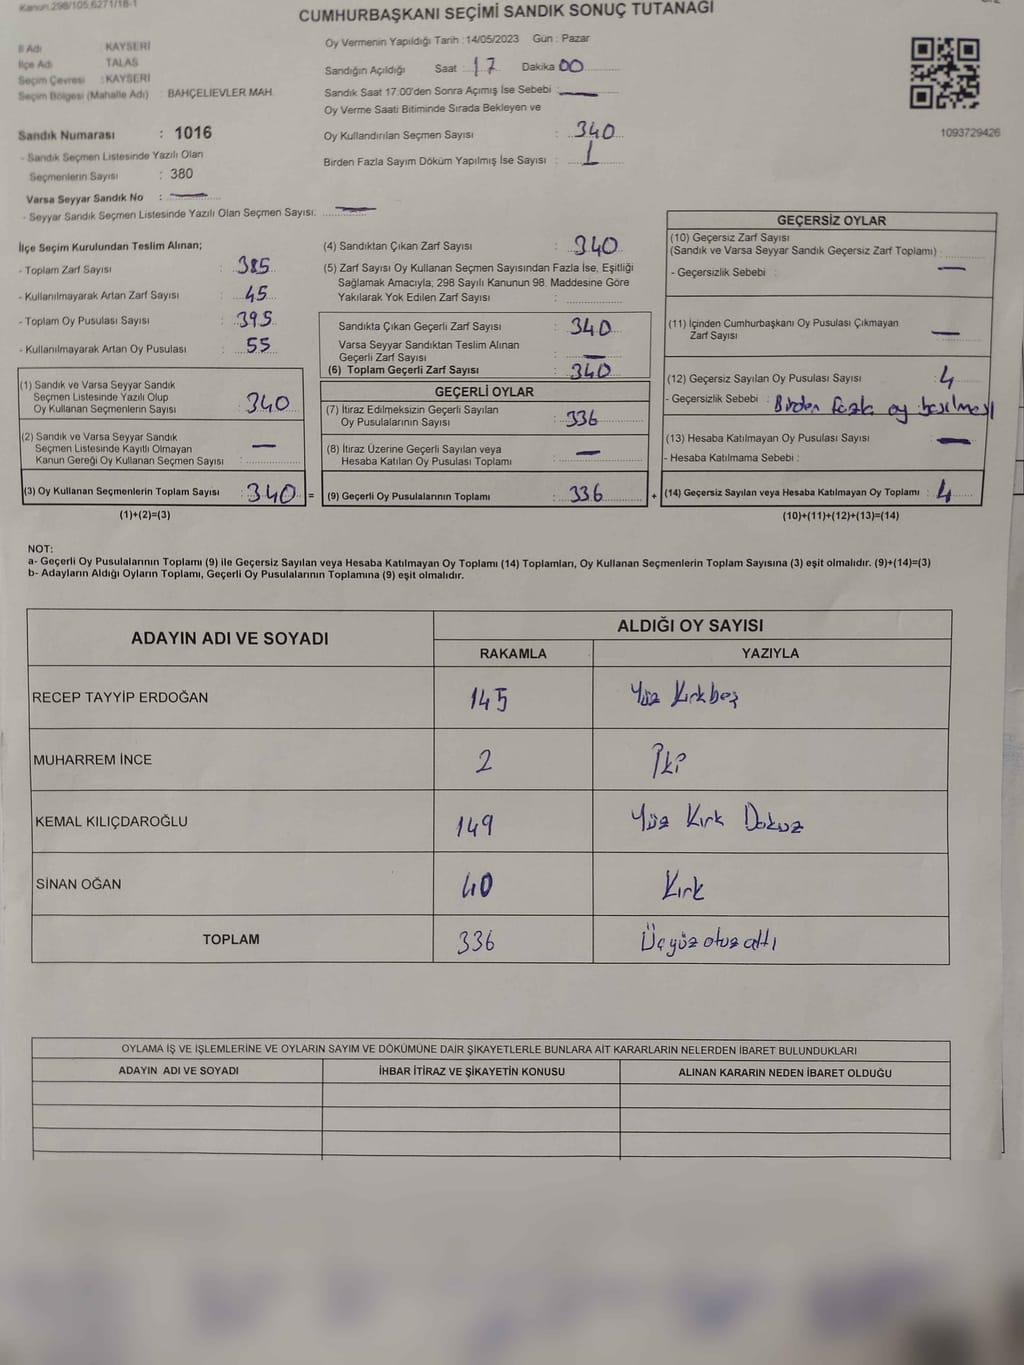 Kanun:298/105,6271/18-1
CUMHURBAŞKANI SEÇİMİ SANDIK SONUÇ TUTANAĞI
İl Adı : KAYSERİ
İlçe Adı : TALAS
Seçim Çevresi : KAYSERİ
Seçim Bölgesi (Mahalle Adı) : BAHÇELİEVLER MAH.
Sandık Numarası : 1016
- Sandık Seçmen Listesinde Yazılı Olan
Seçmenlerin Sayısı : 380
Varsa Seyyar Sandık No : —
- Seyyar Sandık Seçmen Listesinde Yazılı Olan Seçmen Sayısı: —
Oy Vermenin Yapıldığı Tarih : 14/05/2023 Gün : Pazar
Sandığın Açıldığı Saat : 17 Dakika 00
Sandık Saat 17.00'den Sonra Açımış İse Sebebi : —
Oy Verme Saati Bitiminde Sırada Bekleyen ve
Oy Kullandırılan Seçmen Sayısı : 340
Birden Fazla Sayım Döküm Yapılmış İse Sayısı : 1
1093729426
İlçe Seçim Kurulundan Teslim Alınan;
- Toplam Zarf Sayısı : 385
- Kullanılmayarak Artan Zarf Sayısı : 45
- Toplam Oy Pusulası Sayısı : 395
- Kullanılmayarak Artan Oy Pusulası : 55
(1) Sandık ve Varsa Seyyar Sandık
Seçmen Listesinde Yazılı Olup
Oy Kullanan Seçmenlerin Sayısı : 340
(2) Sandık ve Varsa Seyyar Sandık
Seçmen Listesinde Kayıtlı Olmayan
Kanun Gereği Oy Kullanan Seçmen Sayısı : —
(3) Oy Kullanan Seçmenlerin Toplam Sayısı : 340 =
(1)+(2)=(3)
(4) Sandıktan Çıkan Zarf Sayısı : 340
(5) Zarf Sayısı Oy Kullanan Seçmen Sayısından Fazla İse, Eşitliği
Sağlamak Amacıyla; 298 Sayılı Kanunun 98. Maddesine Göre
Yakılarak Yok Edilen Zarf Sayısı :
Sandıkta Çıkan Geçerli Zarf Sayısı : 340
Varsa Seyyar Sandıktan Teslim Alınan
Geçerli Zarf Sayısı : —
(6) Toplam Geçerli Zarf Sayısı : 340
GEÇERLİ OYLAR
(7) İtiraz Edilmeksizin Geçerli Sayılan
Oy Pusulalarının Sayısı : 336
(8) İtiraz Üzerine Geçerli Sayılan veya
Hesaba Katılan Oy Pusulası Toplamı : —
(9) Geçerli Oy Pusulalarının Toplamı : 336 +
GEÇERSİZ OYLAR
(10) Geçersiz Zarf Sayısı
(Sandık ve Varsa Seyyar Sandık Geçersiz Zarf Toplamı) :
- Geçersizlik Sebebi : —
(11) İçinden Cumhurbaşkanı Oy Pusulası Çıkmayan
Zarf Sayısı : —
(12) Geçersiz Sayılan Oy Pusulası Sayısı : 4
- Geçersizlik Sebebi : Birden fazla oy basılması
(13) Hesaba Katılmayan Oy Pusulası Sayısı : —
- Hesaba Katılmama Sebebi :
(14) Geçersiz Sayılan veya Hesaba Katılmayan Oy Toplamı : 4
(10)+(11)+(12)+(13)=(14)
NOT:
a- Geçerli Oy Pusulalarının Toplamı (9) ile Geçersiz Sayılan veya Hesaba Katılmayan Oy Toplamı (14) Toplamları, Oy Kullanan Seçmenlerin Toplam Sayısına (3) eşit olmalıdır. (9)+(14)=(3)
b- Adayların Aldığı Oyların Toplamı, Geçerli Oy Pusulalarının Toplamına (9) eşit olmalıdır.
ADAYIN ADI VE SOYADI ALDIĞI OY SAYISI
RAKAMLA YAZIYLA
RECEP TAYYİP ERDOĞAN 145 Yüz Kırkbeş
MUHARREM İNCE 2 İki
KEMAL KILIÇDAROĞLU 149 Yüz Kırk Dokuz
SİNAN OĞAN 40 Kırk
TOPLAM 336 Üçyüz otuz altı
OYLAMA İŞ VE İŞLEMLERİNE VE OYLARIN SAYIM VE DÖKÜMÜNE DAİR ŞİKAYETLERLE BUNLARA AİT KARARLARIN NELERDEN İBARET BULUNDUKLARI
ADAYIN ADI VE SOYADI İHBAR İTİRAZ VE ŞİKAYETİN KONUSU ALINAN KARARIN NEDEN İBARET OLDUĞU